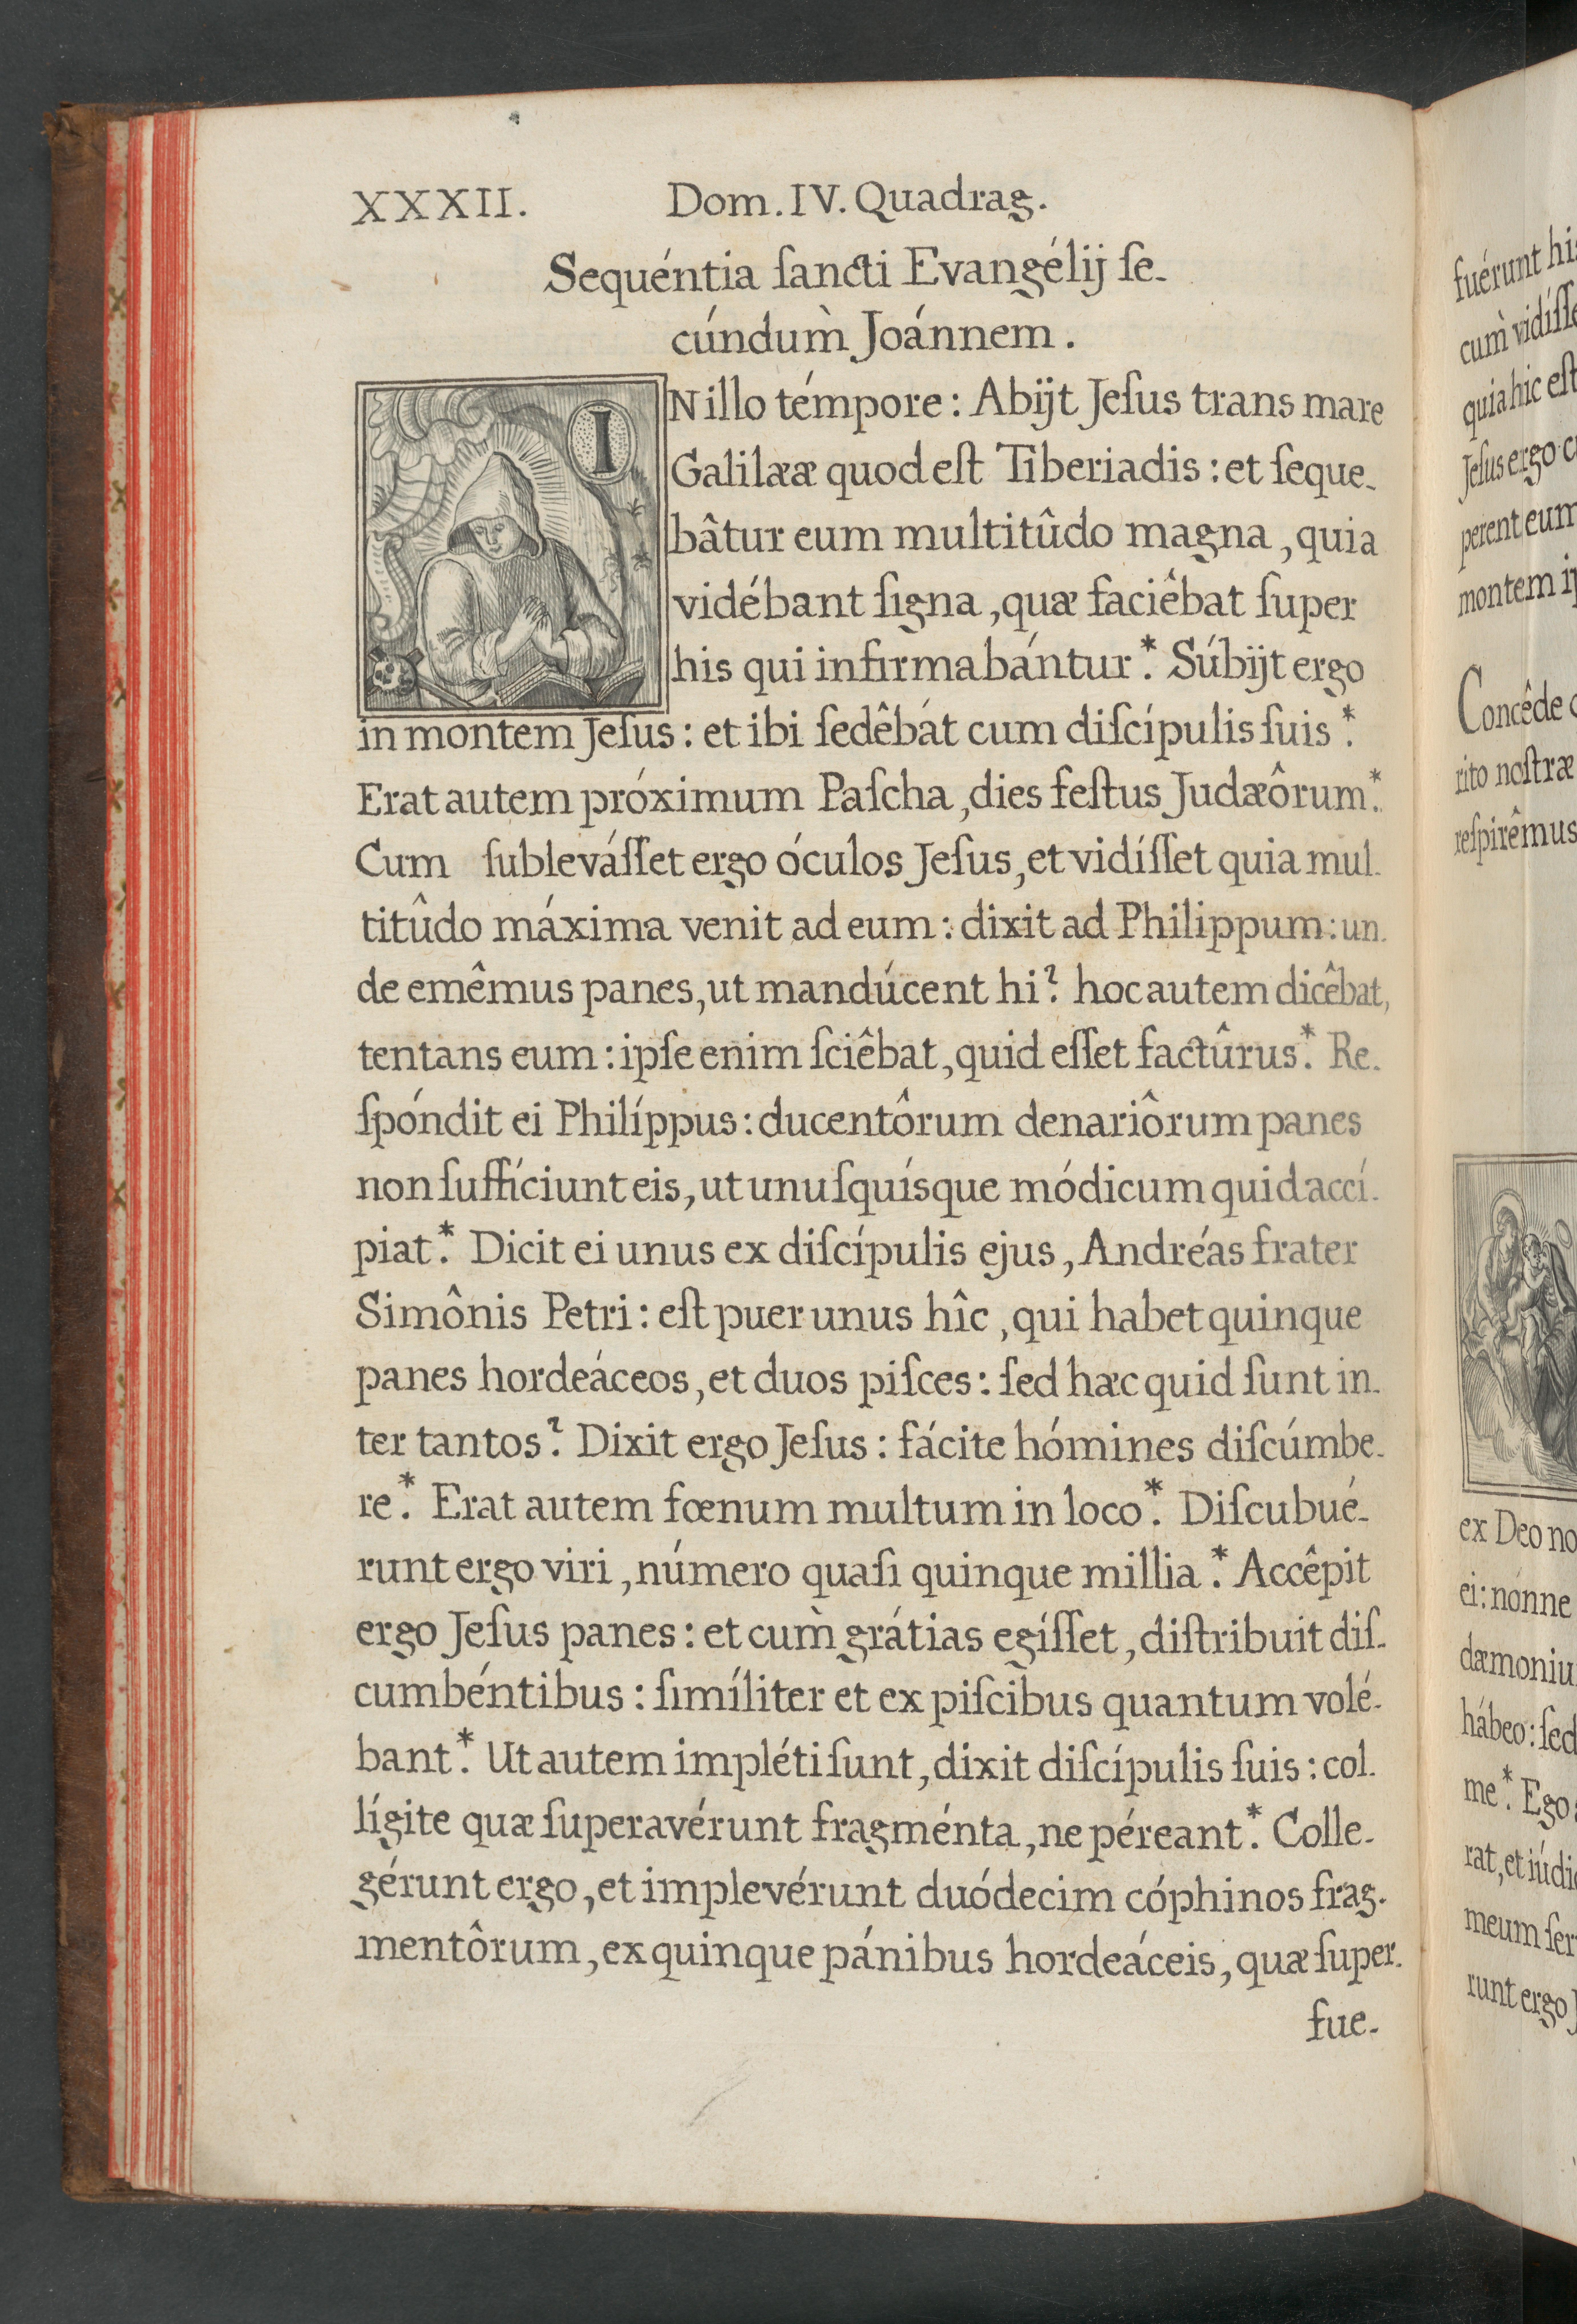 XXXII. Dom. IV. Quadrag.
Sequéntia ſancti Evangélij ſe-
cúndum̀ Joánnem.
IN illo témpore: Abijt Jeſus trans mare
Galilææ quod eſt Tiberiadis: et ſeque-
bâtur eum multitûdo magna, quia
vidébant ſigna, quæ faciêbat ſuper
his qui infirmabántur.* Súbijt ergo
in montem Jeſus: et ibi ſedêbát cum diſcípulis ſuis.*
Erat autem próximum Paſcha, dies feſtus Judæôrum.*
Cum ſubleváſſet ergo óculos Jeſus, et vidíſſet quia mul-
titûdo máxima venit ad eum: dixit ad Philippum: un-
de emêmus panes, ut mandúcent hi? hoc autem dicêbat,
tentans eum: ipſe enim ſciêbat, quid eſſet factûrus.* Re-
ſpóndit ei Philíppus: ducentôrum denariôrum panes
non ſuffíciunt eis, ut unuſquísque módicum quid accí-
piat.* Dicit ei unus ex diſcípulis ejus, Andréas frater
Simônis Petri: eſt puer unus hîc, qui habet quinque
panes hordeáceos, et duos piſces: ſed hæc quid ſunt in-
ter tantos? Dixit ergo Jeſus: fácite hómines diſcúmbe-
re.* Erat autem fœnum multum in loco.* Diſcubué-
runt ergo viri, número quaſi quinque millia.* Accêpit
ergo Jeſus panes: et cum̀ grátias egíſſet, diſtribuit diſ-
cumbéntibus: ſimíliter et ex piſcibus quantum volé-
bant.* Ut autem impléti ſunt, dixit diſcípulis ſuis: col-
lígite quæ ſuperavérunt fragménta, ne péreant.* Colle-
gérunt ergo, et implevérunt duódecim cóphinos frag-
mentôrum, ex quinque pánibus hordeáceis, quæ ſuper-
fue-
fuérunt
cum̀
quia hic eſt
Jeſus ergo
perent eum
montem
Concêde
rito noſtræ
reſpirêmus
ex Deo
ei: nónne
hábeo: ſed
me.* Ego
rat, et
meum
runt ergo